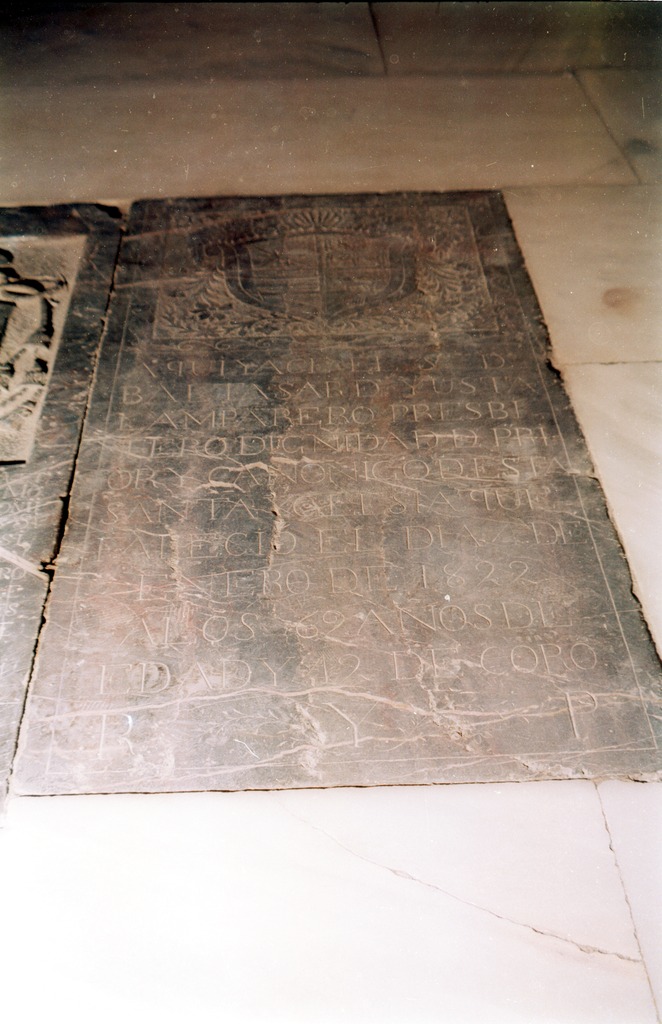 AQUI YACE EL S. D.
BALTASAR D YUSTA
LAMPARERO PRESBI
TERO DIGNIDAD D PRI
OR Y CANONIGO DE ESTA
SANTA YGLESIA QUE
FALLECIO EL DIA DE
ENERO DE 1822
A LOS 69 AÑOS DE
EDAD Y 42 DE CORO
R Y P